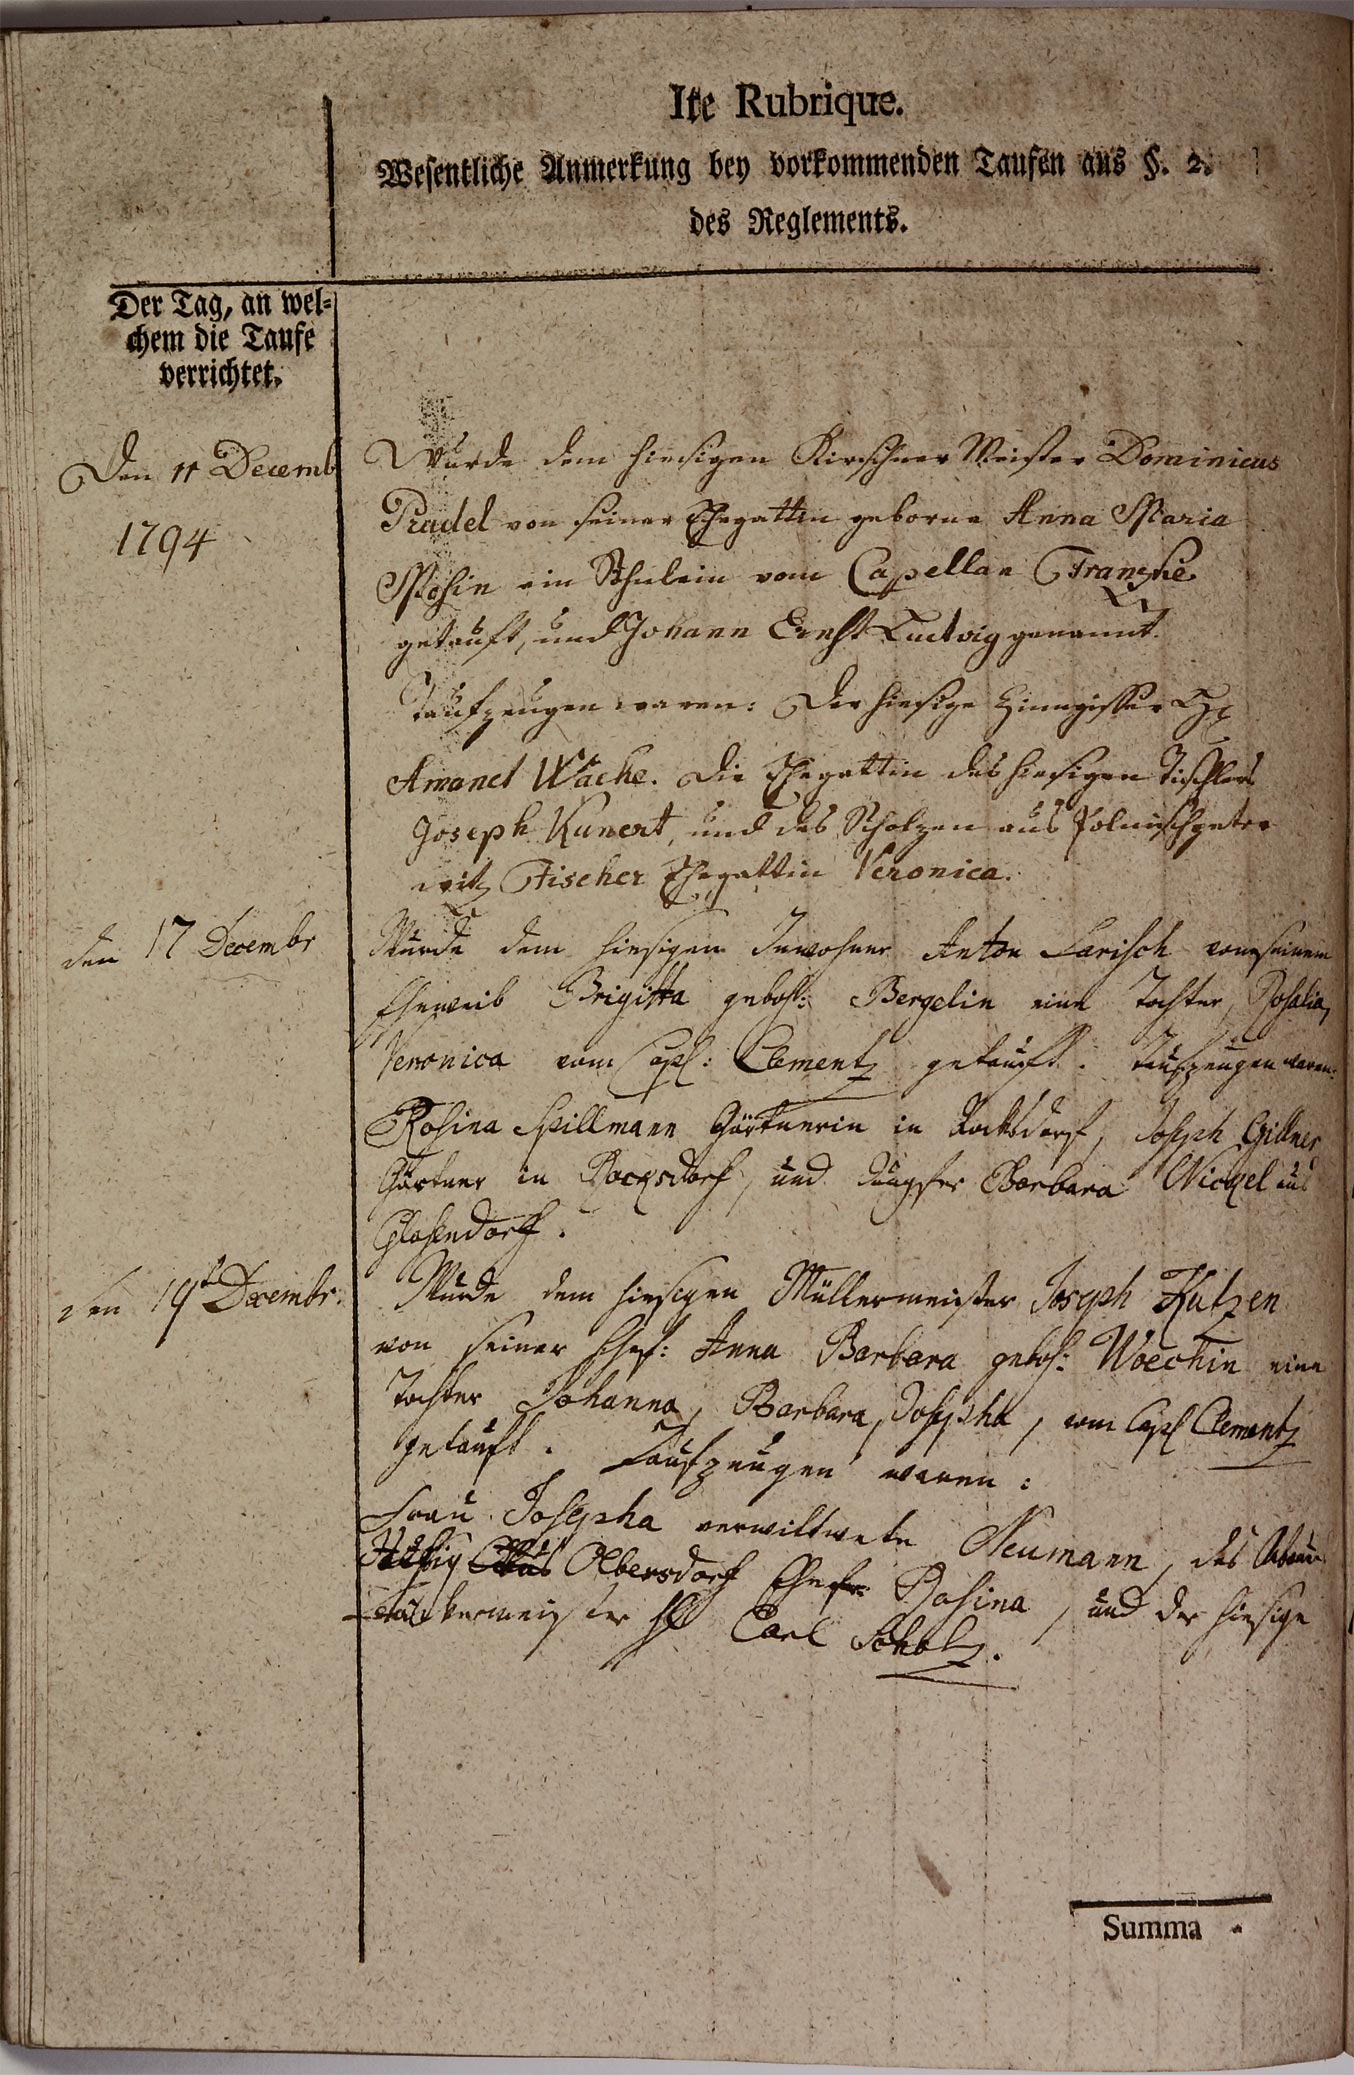 Ite Rubrique.
Wesentliche Anmerkung bey vorkommenden Taufen aus §. 2.
des Reglements.
Der Tag, an wel-
chem die Taufe
verrichtet.
Den 11 Decemb
1794
Wurde dem hiesigen Kirschner Meister Dominicus
Pradel von seiner Ehegattin geborne Anna Maria
ein Söhnlein vom Capellan Franzke
getauft, und Johann Ernst Ludwig genannt.
Taufzeugen waren: Der hiesige Zinngisser
Amand Wache. Die Ehegattin des hiesigen Tischlers
Joseph Kunert, und des Scholzen aus Polnischpeter
witz Fischer Ehegattin Veronica.
den 17 Decembr
Wurde dem hiesigen Inwohner Anton Larisch von seinem
Eheweib Brigitta geboh: Bergelin eine Tochter, Rosalia,
Veronica vom Capl: Clementz getauft. Taufzeugen waren:
Rosina Spillmann Gärtnerin in Josph Gillner
Gärtner in und Jungfer Barbara Nickel aus
Glasendorf.
den 19t Decembr.
Wurde dem hiesigen Müllermeister Joseph Kutzen
von seiner Ehef: Anna Barbara geboh: Woechin eine
Tochter Johanna, Barbara, Josepha, vom Capl Clementz
getauft. Taufzeugen waren:
Frau Josepha verwittwete Neumann, des
aus Olbersdorf Ehefr: Rosina, und der hiesige
Carl Scholtz.
Summa